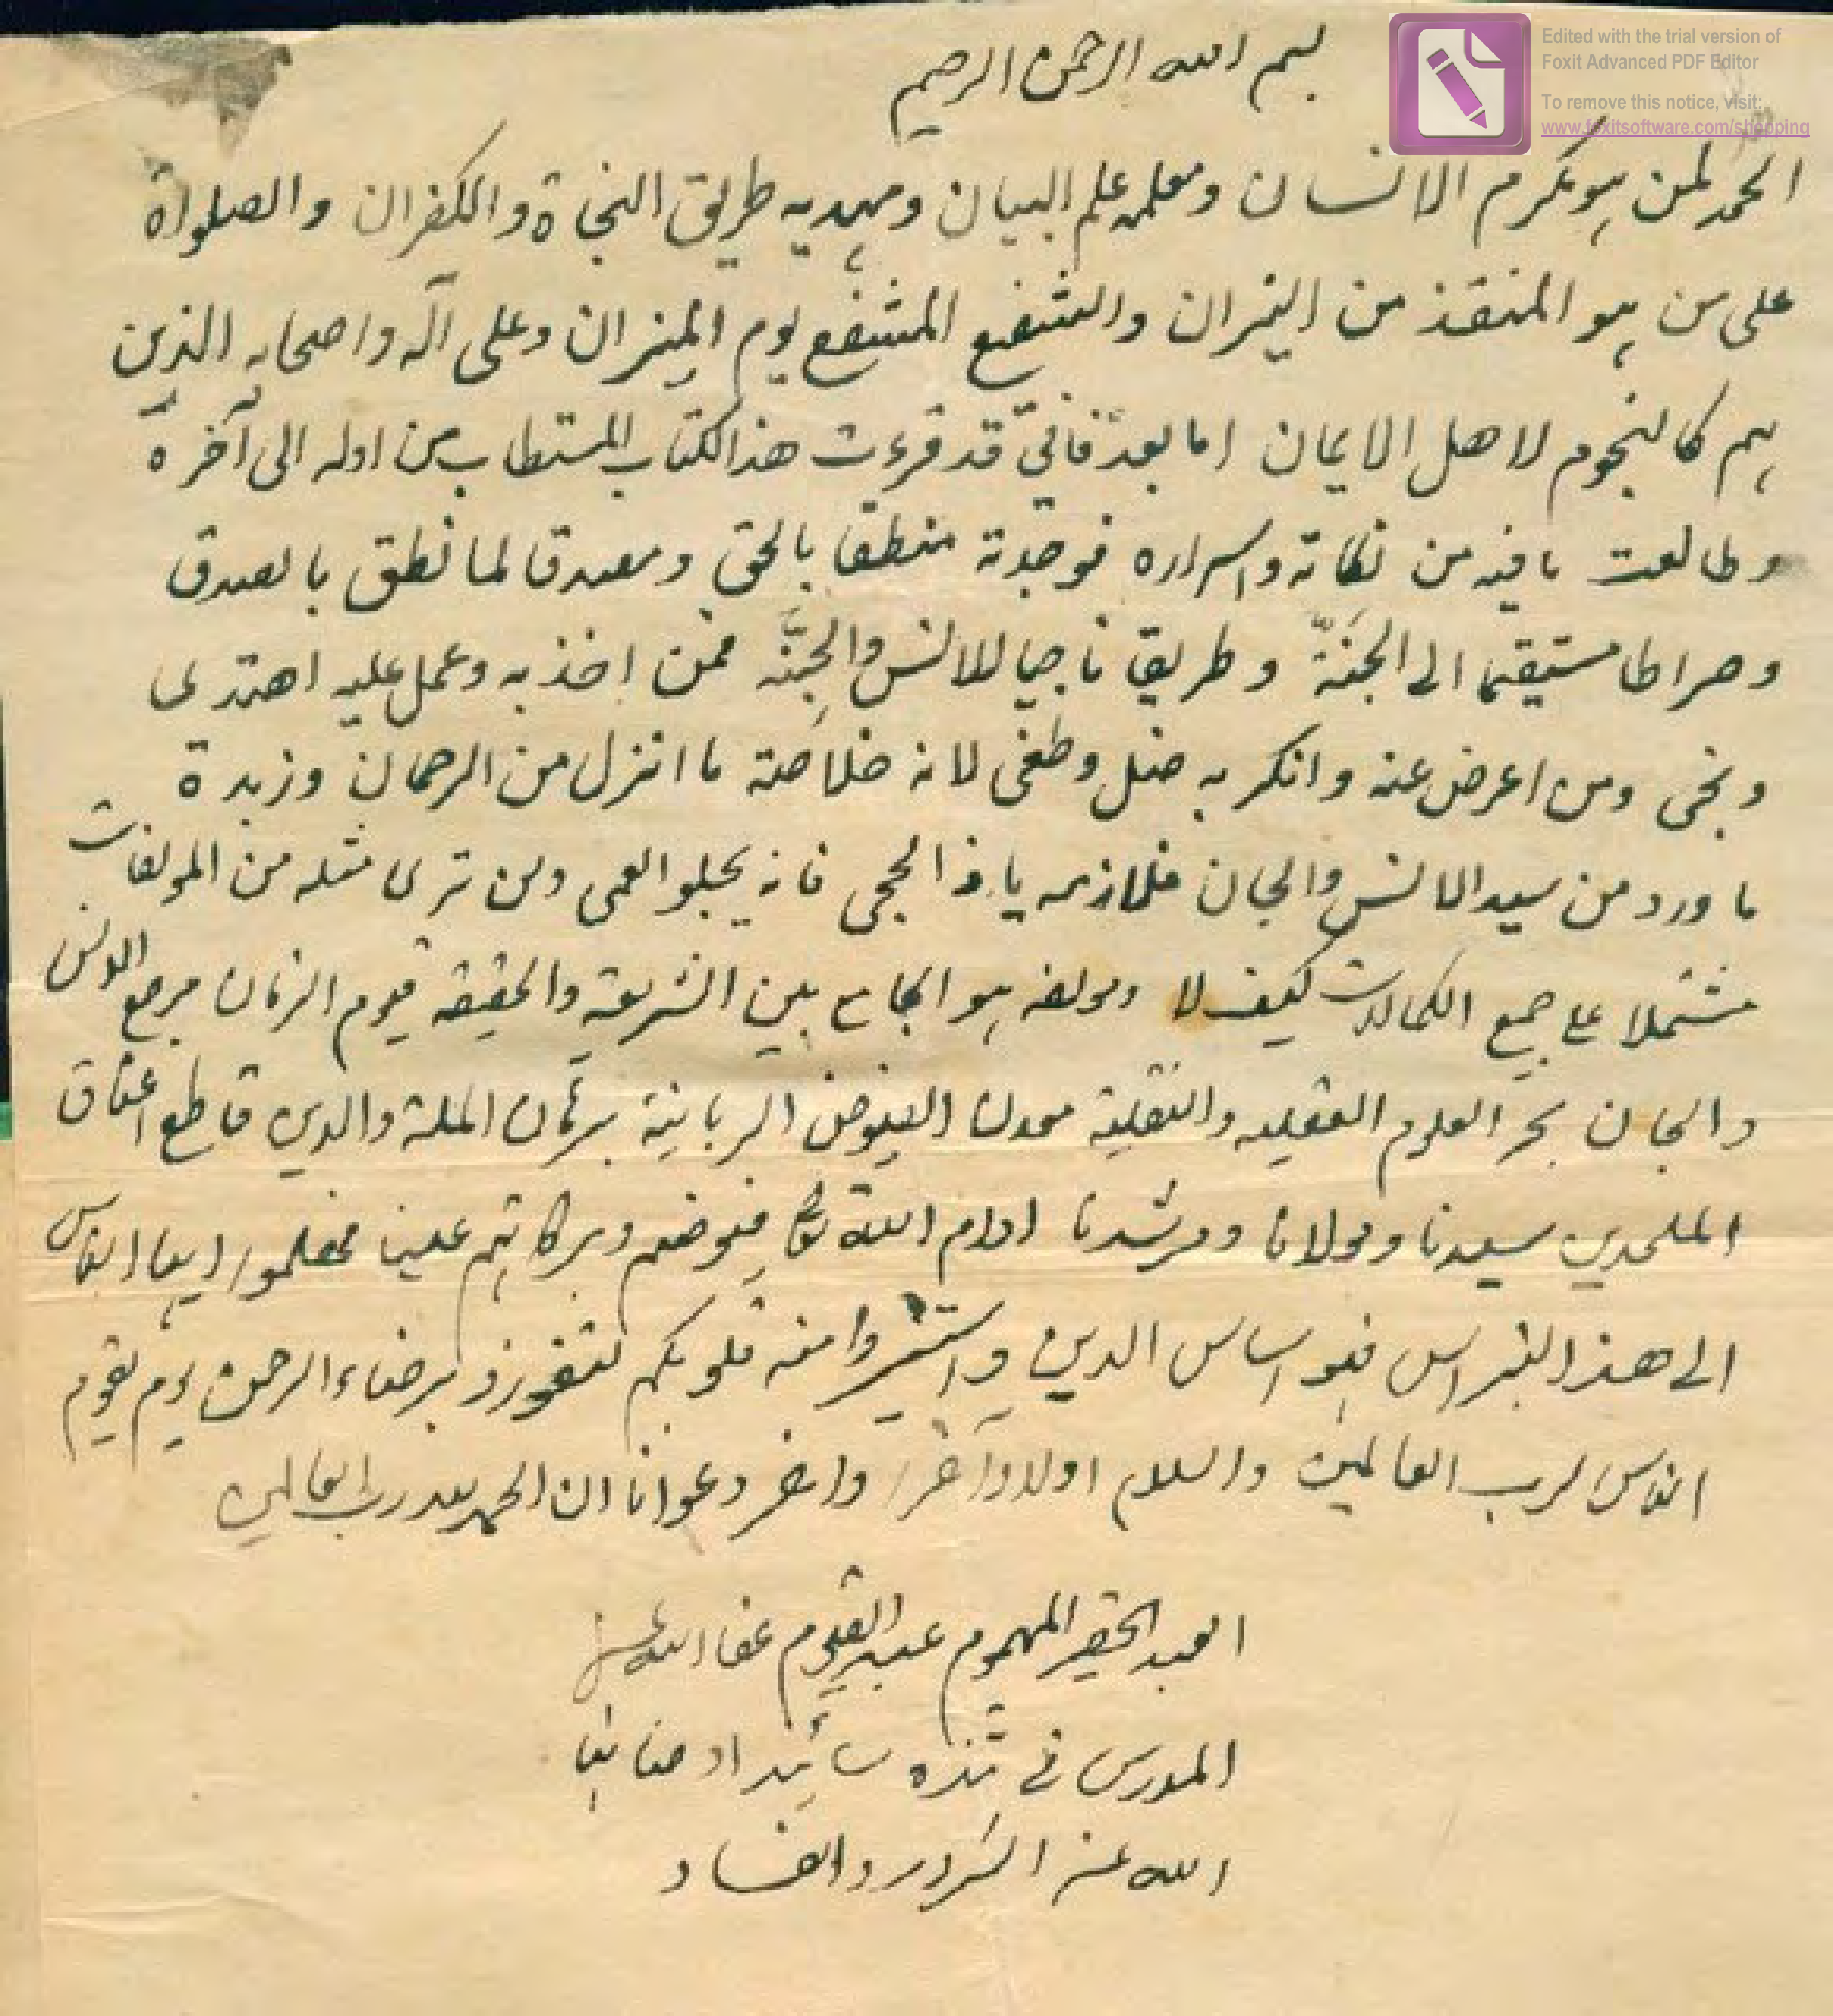 بسم الله الرحمن الرحيم
Edited with the trial version of
Foxit Advanced PDF Editor
To remove this notice, visit:
www.foxitsoftware.com/shopping
الحمد لمن هو مكرم الانسان ومعلمه علم البيان ومهديه طريق النجاة والكفران والصلواة
على من هو المنقذ من النيران والشفيع المشفع يوم الميزان وعلى آله واصحابه الذين
هم كالنجوم لاهل الايمان اما بعد فاني قد قرءت هذا الكتاب المستطاب من اوله الى آخره
وطالعت ما فيه من نكاته واسراره فوجدته منطقا بالحق ومصدقا لما نطق بالصدق
وصراطا مستقيما الى الجنة وطريقا ناجيا للانس والجِنَّه فمن اخذ به وعمل عليه اهتدى
ونجى ومن اعرض عنه وانكر به ضل وطغى لانه خلاصة ما انزل من الرحمان وزبدة
ما ورد من سيد الانس والجان فلازمه يا ذا الحجى فانه يجلو العمى ولن ترى مثله من المولفات
مشتملا على جميع الكمالات كيف لا ومولفه هو الجامع بين الشريعة والحقيقة قيوم الزمان مرجع الانس
والجان بحر العلوم العقليه والنقلية معدن الفيوض الربانية برهان الملة والدين قاطع اعناق
الملحدين سيدنا ومولانا ومرشدنا ادام الله فيوضهم وبركاتهم علينا ايها الناس
الى هذا النبراس فهو اساس الدين واستنيروا منه قلوبكم لتفوزو برضاء الرحمن يوم يقوم
الناس لرب العالمين والسلام اولا وآخرا واخر دعوانا ان الحمد لله رب العالمين
العبد الحقير المهموم عبد القيوم عفا الله عنه
المدرس في سائيداد صانها
الله عن الشرور والفساد